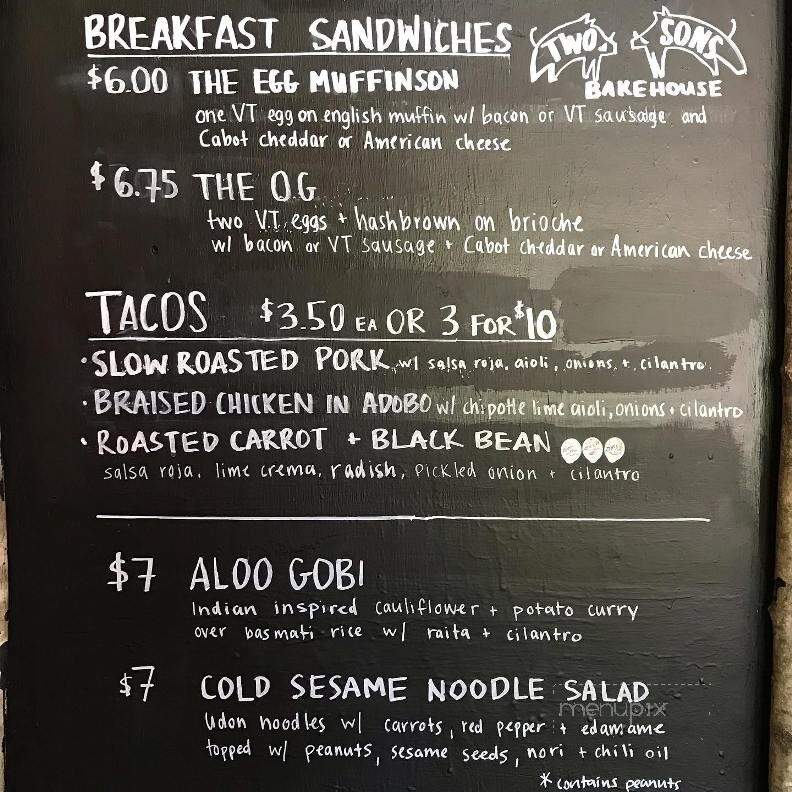 BREAKFAST SANDWICHES
TWO SONS
BAKEHOUSE
$6.00 THE EGG MUFFINSON
one VT egg on english muffin w/ bacon or VT sausage and
Cabot cheddar or American cheese
$6.75 THE O.G
two VT eggs + hashbrown on brioche
w/ bacon or VT sausage + Cabot cheddar or American cheese
TACOS $3.50 EA OR 3 FOR $10
• SLOW ROASTED PORK w/ salsa roja, aioli, onions + cilantro
• BRAISED CHICKEN IN ADOBO w/ chipotle lime aioli, onions + cilantro
• ROASTED CARROT + BLACK BEAN
salsa roja, lime crema, radish, pickled onion + cilantro
$7 ALOO GOBI
Indian inspired cauliflower + potato curry
over basmati rice w/ raita + cilantro
$7 COLD SESAME NOODLE SALAD
menupix
Udon noodles w/ carrots, red pepper + edamame
topped w/ peanuts, sesame seeds, nori + chili oil
* contains peanuts